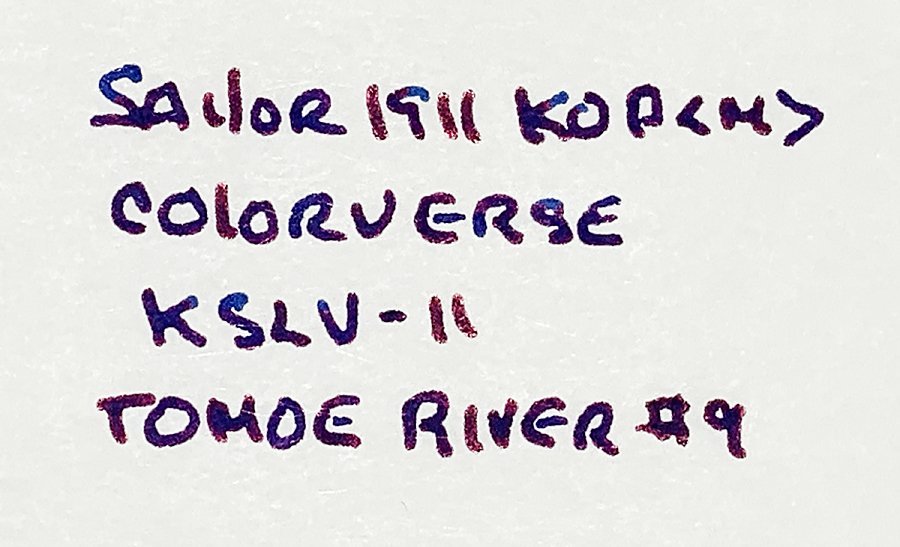 Sailor 1911 KOP<M>
COlORVERSE
KSLV-II
TOMOE RIVER #9